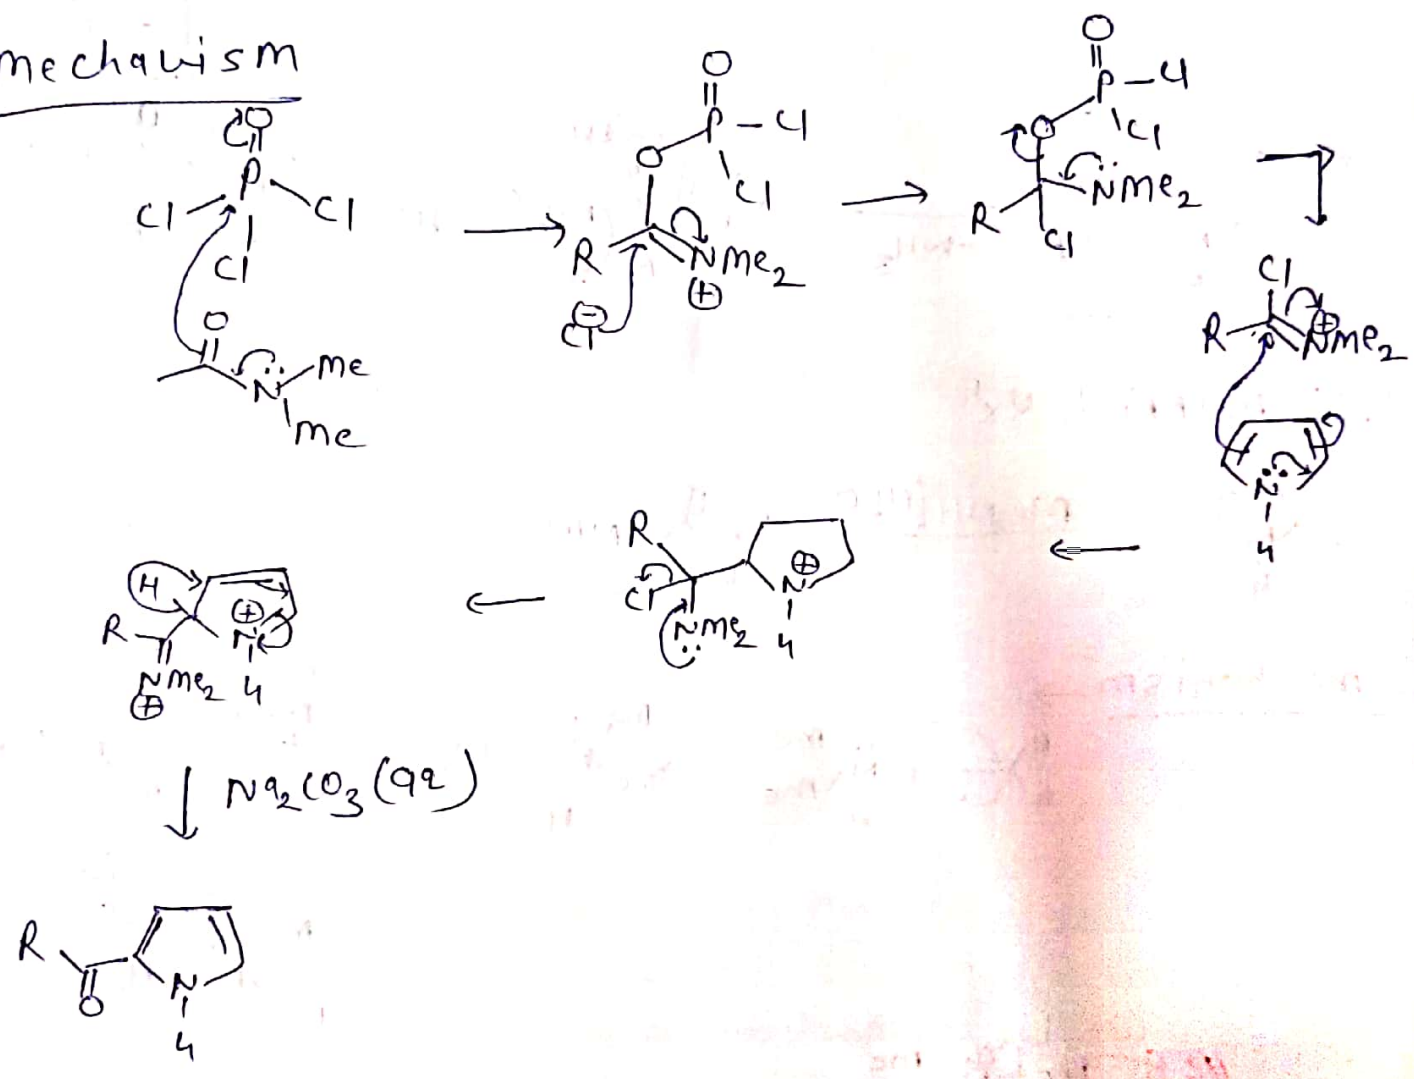 mechanism
O
P
Cl
Cl
Cl
O
N
Me
Me
O
P
Cl
O
Cl
R
NMe2
⊕
Cl
⊖
O
P
Cl
O
Cl
R
NMe2
Cl
Cl
R
⊕
NMe2
N
H
R
Cl
NMe2
⊕
N
H
H
R
⊕
N
NMe2
H
⊕
Na2CO3(aq)
R
O
N
H